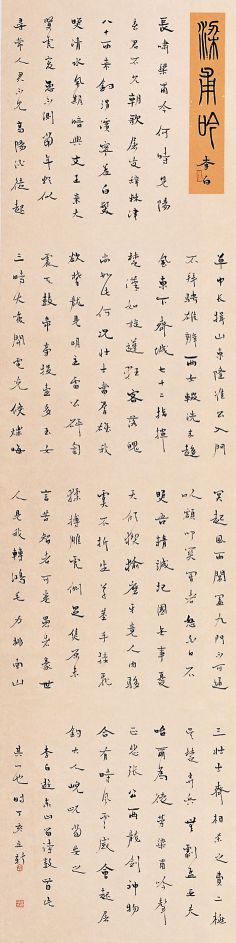 梁甫吟
李白
長嘯梁甫吟何時見陽
春君不見朝歌屠叟辭棘津
八十西來釣渭濱寧羞白髮
照清水風期暗與文王親大
賢虎變愚不測當年頗似
尋常人君不見高陽酒徒起
草中長揖山東隆準公入門
不拜騁雄辯兩女輟洗來趨
風東下齊城七十二指揮
楚漢如旋蓬狂客落魄
尚如此何況壯士當群雄我
欲攀龍見明主雷公砰訇
震天鼓帝旁投壺多玉女
三時大笑開電光倏爍晦
冥起風雨閶闔九門不可通
以額叩關閽者怒白日不
照吾精誠杞國無事憂
天傾猰貐磨牙競人肉騶
虞不折生草莖手接飛
猱搏雕虎側足焦原未
言苦智者可卷愚者豪世
人見我輕鴻毛力排南山
三壯士齊相殺之費二桃
吳楚弄兵無劇孟亞夫
咍爾為徒勞梁甫吟聲
正悲張公兩龍劍神物
合有時風雲感會起屠
釣大人𡸣屼當安之
李白遊泰山留詩數首此
其一也時丁亥